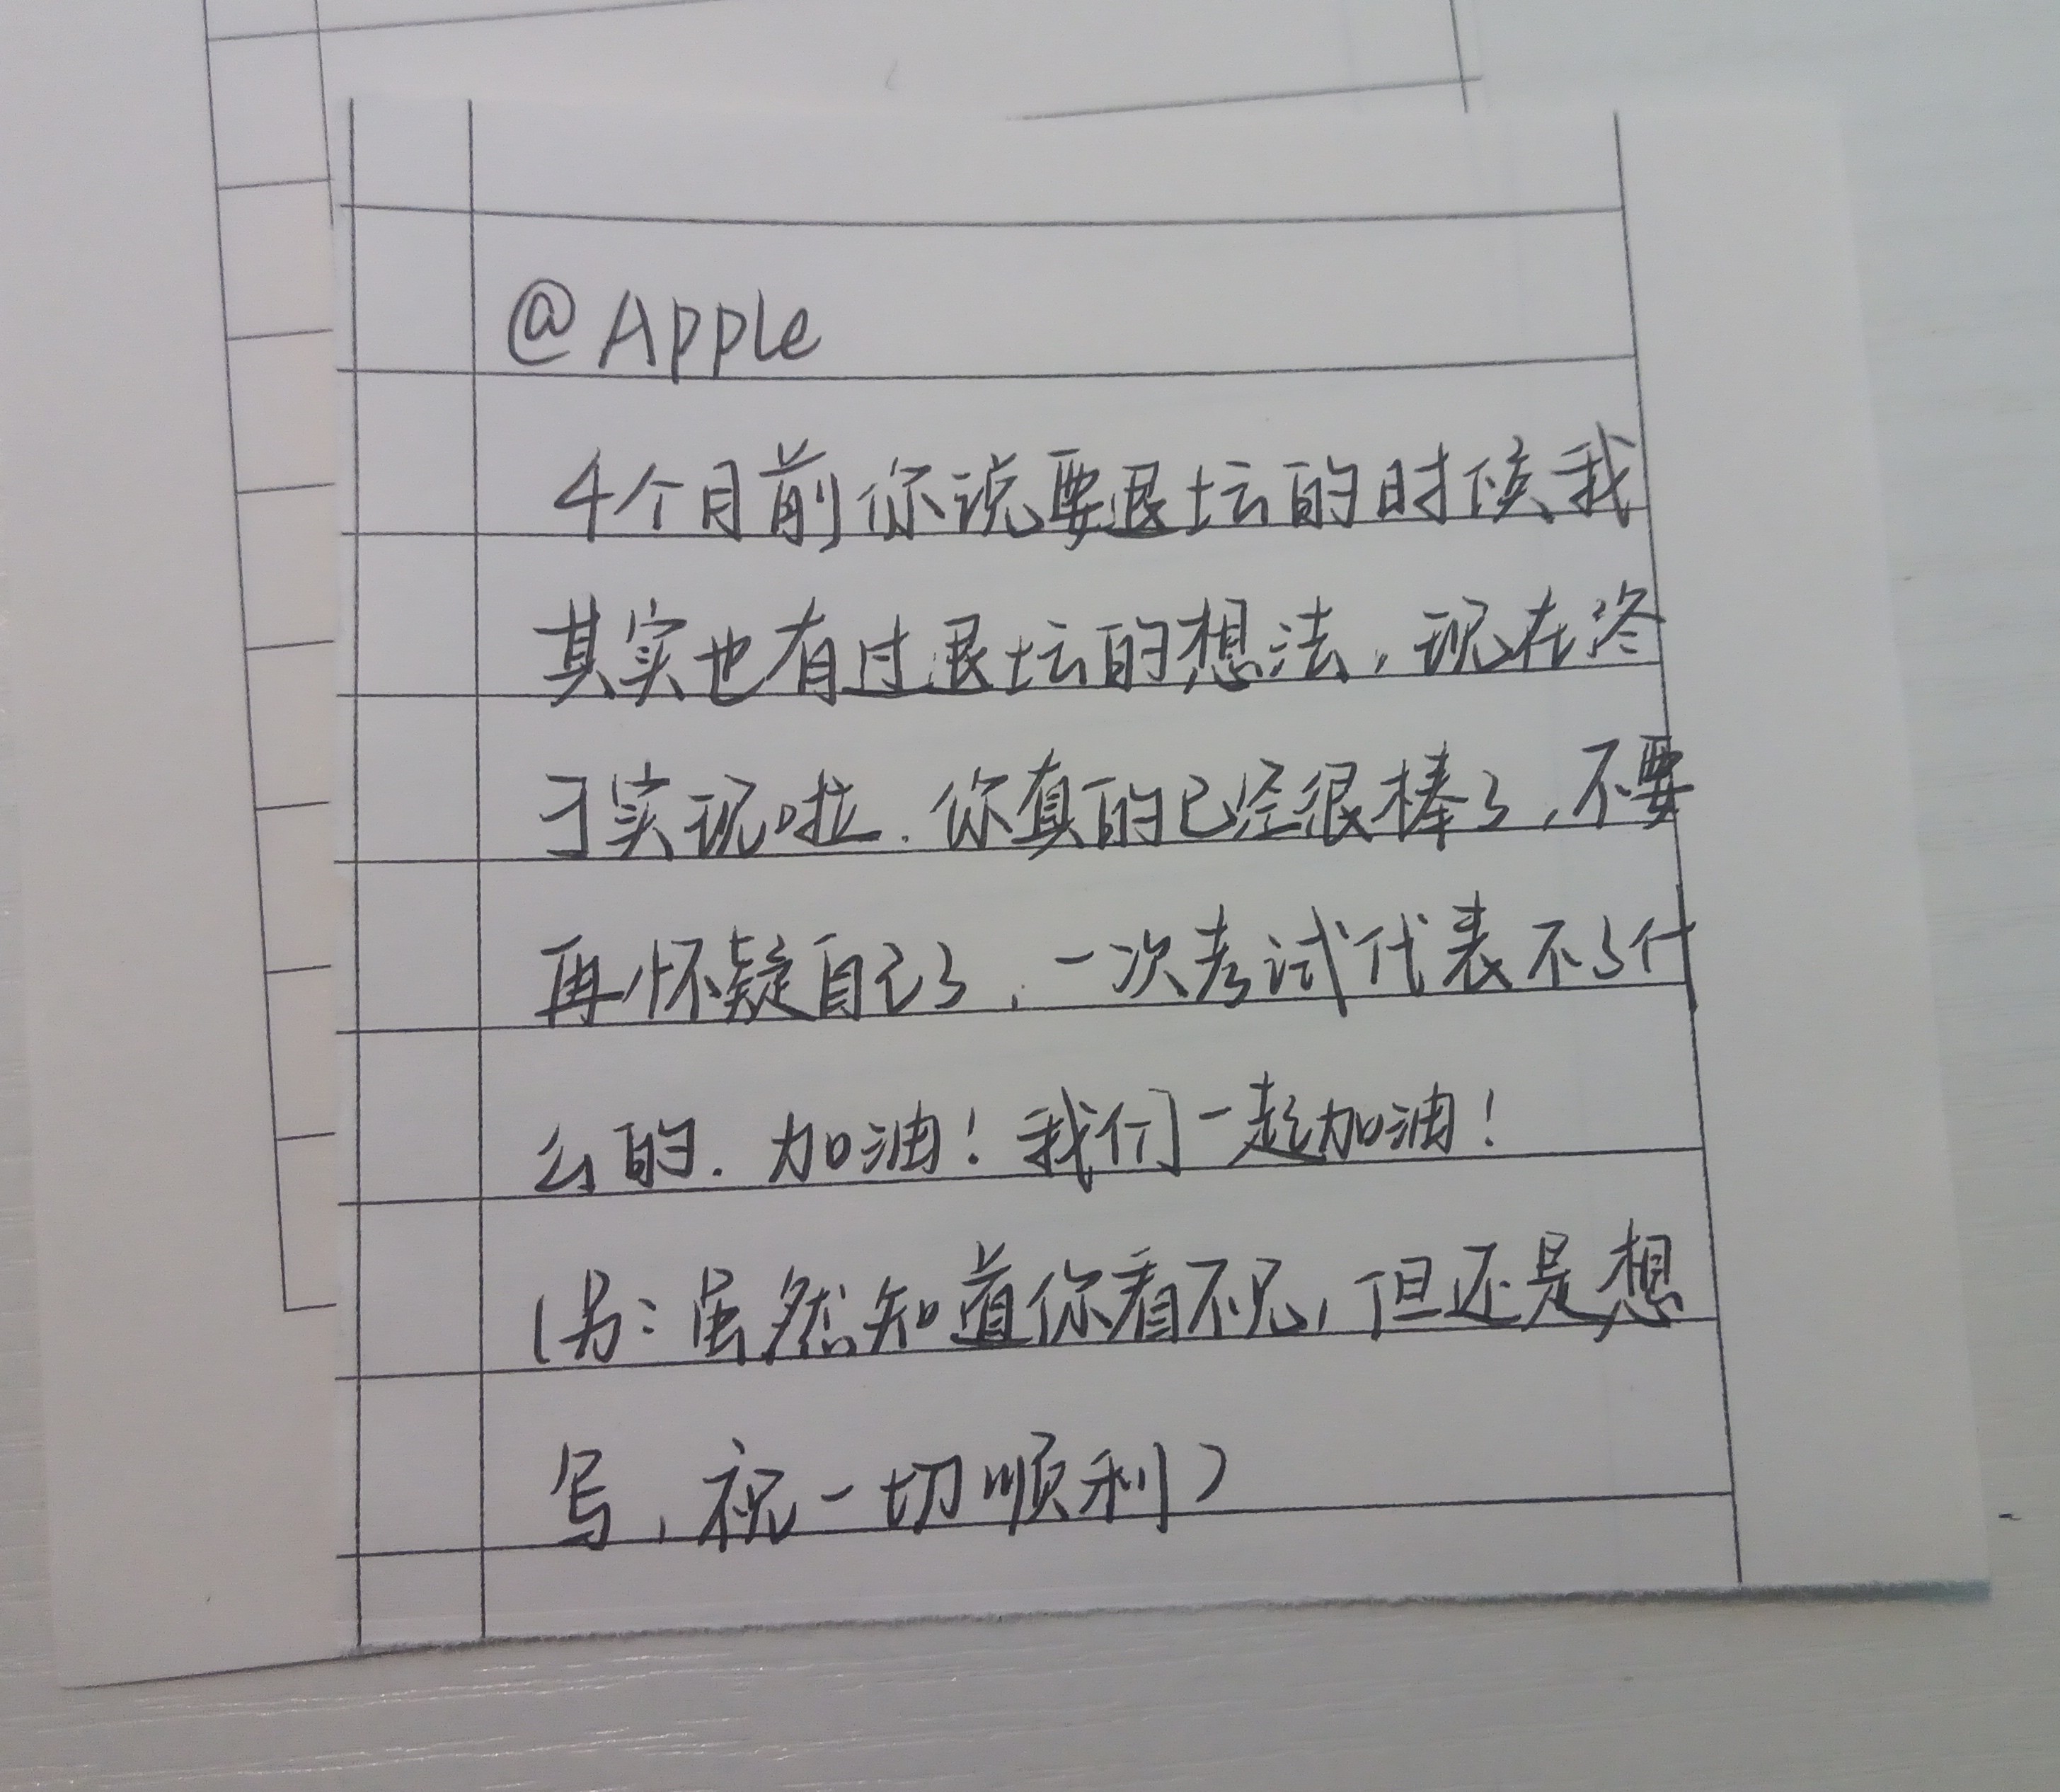 @Apple
4个月前你说要退坛的时候我
其实也有过退坛的想法，现在终
于实现啦．你真的已经很棒了，不要
再怀疑自己了，一次考试代表不了什
么的．加油！我们一起加油！
（另：虽然知道你看不见，但还是想
写，祝一切顺利）